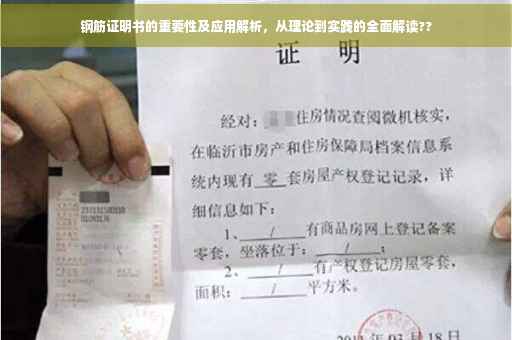 钢筋证明书的重要性及应用解析，从理论到实践的全面解读??
证 明
经对：住房情况查阅微机核实，
在临沂市房产和住房保障局档案信息系
统内现有 零 套房屋产权登记记录，详
细信息如下：
1、 / 有商品房网上登记备案
零套，坐落位于： / ；
2、 / 有产权登记房屋零套，
面积： / 平方米。
03 月 18 日